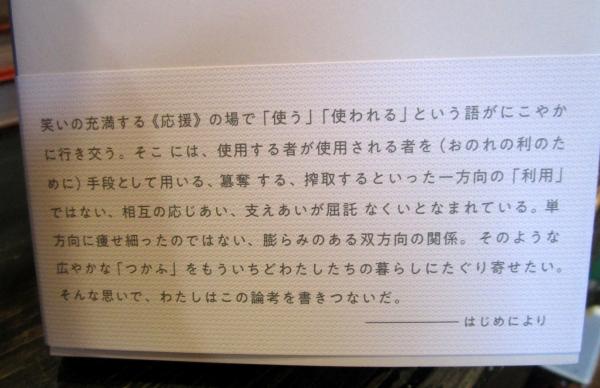 笑いの充満する《応援》の場で「使う」「使われる」という語がにこやか
に行き交う。そこには、使用する者が使用される者を（おのれの利のた
めに）手段として用いる、簒奪する、搾取するといった一方向の「利用」
ではない、相互の応じあい、支えあいが屈託なくいとなまれている。単
方向に痩せ細ったのではない、膨らみのある双方向の関係。そのような
広やかな「つかふ」をもういちどわたしたちの暮らしにたぐり寄せたい。
そんな思いで、わたしはこの論考を書きつないだ。
――はじめにより